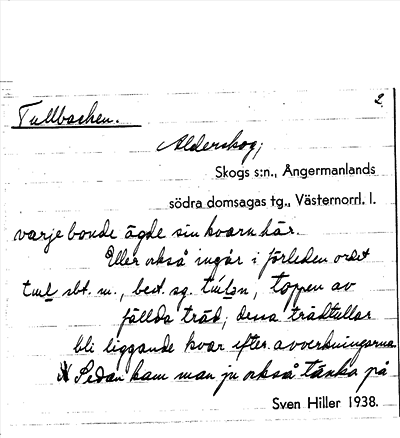 2.
Tullbacken.
Alderskog;
Skogs s:n., Ångermanlands
södra domsagas tg., Västernorrl. l.
varje bonde ägde sin kvarn här.
Eller också ingår i förleden ordet
sbt. m., best. sg. toppen av
fällda träd; dessa trädtullar
bli liggande kvar efter avverkningarna
Sedan kam man ju också tänka på
Sven Hiller 1938.